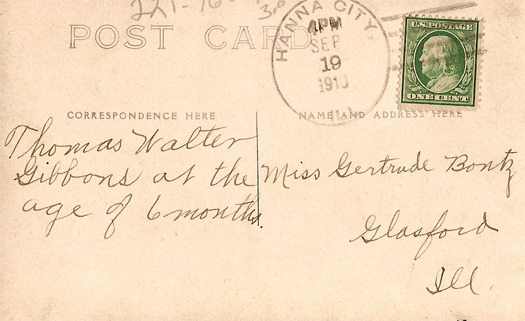 221-16
30
POST CARD
HANNA CITY,
4PM
SEP
19
1910
ILL.
U.S. POSTAGE
ONE CENT
CORRESPONDENCE HERE
NAME AND ADDRESS HERE
Thomas Walter
Gibbons at the
age of 6 months.
Miss Gertrude Bontz
Glasford
Ill.